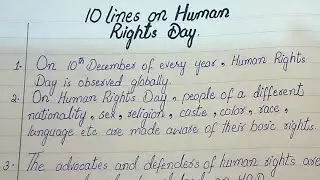 10 lines on Human
Rights Day.
1. On 10th December of every year, Human Rights
Day is observed globally.
2. On Human Rights Day, people of a different
nationality, sex, religion, caste, color, race,
language etc are made aware of their basic rights.
3. The advocates and defenders of human rights are